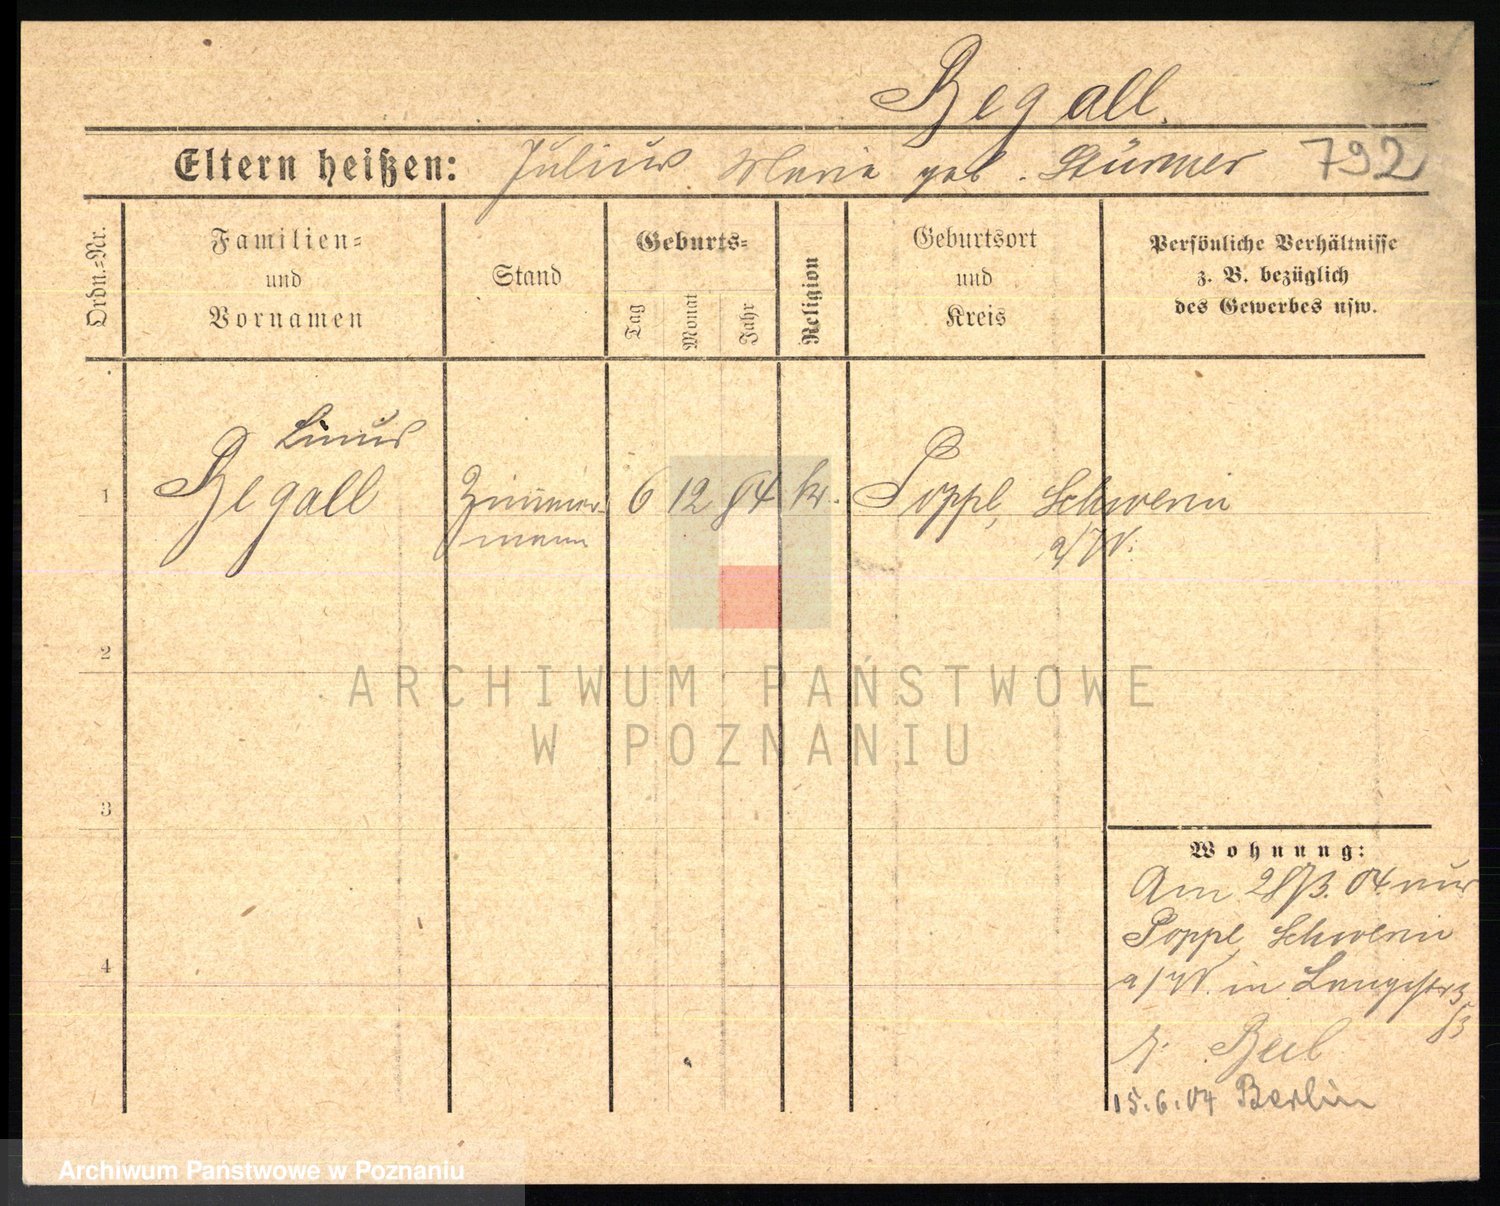 Begall.
Eltern heißen: Julius Marie geb. Stürmer 792
Ordn.=Nr.
Familien=
und
Vornamen
Stand
Geburts=
Tag
Monat
Jahr
Religion
Geburtsort
und
Kreis
Persönliche Verhältnisse
z. B. bezüglich
des Gewerbes usw.
Linus
1 Begall Zimmer- 6 12 84 k. Poppe, Schwerin
mann a/W.
2
ARCHIWUM PAŃSTWOWE
W POZNANIU
3
Wohnung:
Am 28/3. 04. aus
Poppe, Schwerin
a/W. in Langestr 3
b.
4
15.6.04 Berlin
Archiwum Państwowe w Poznaniu